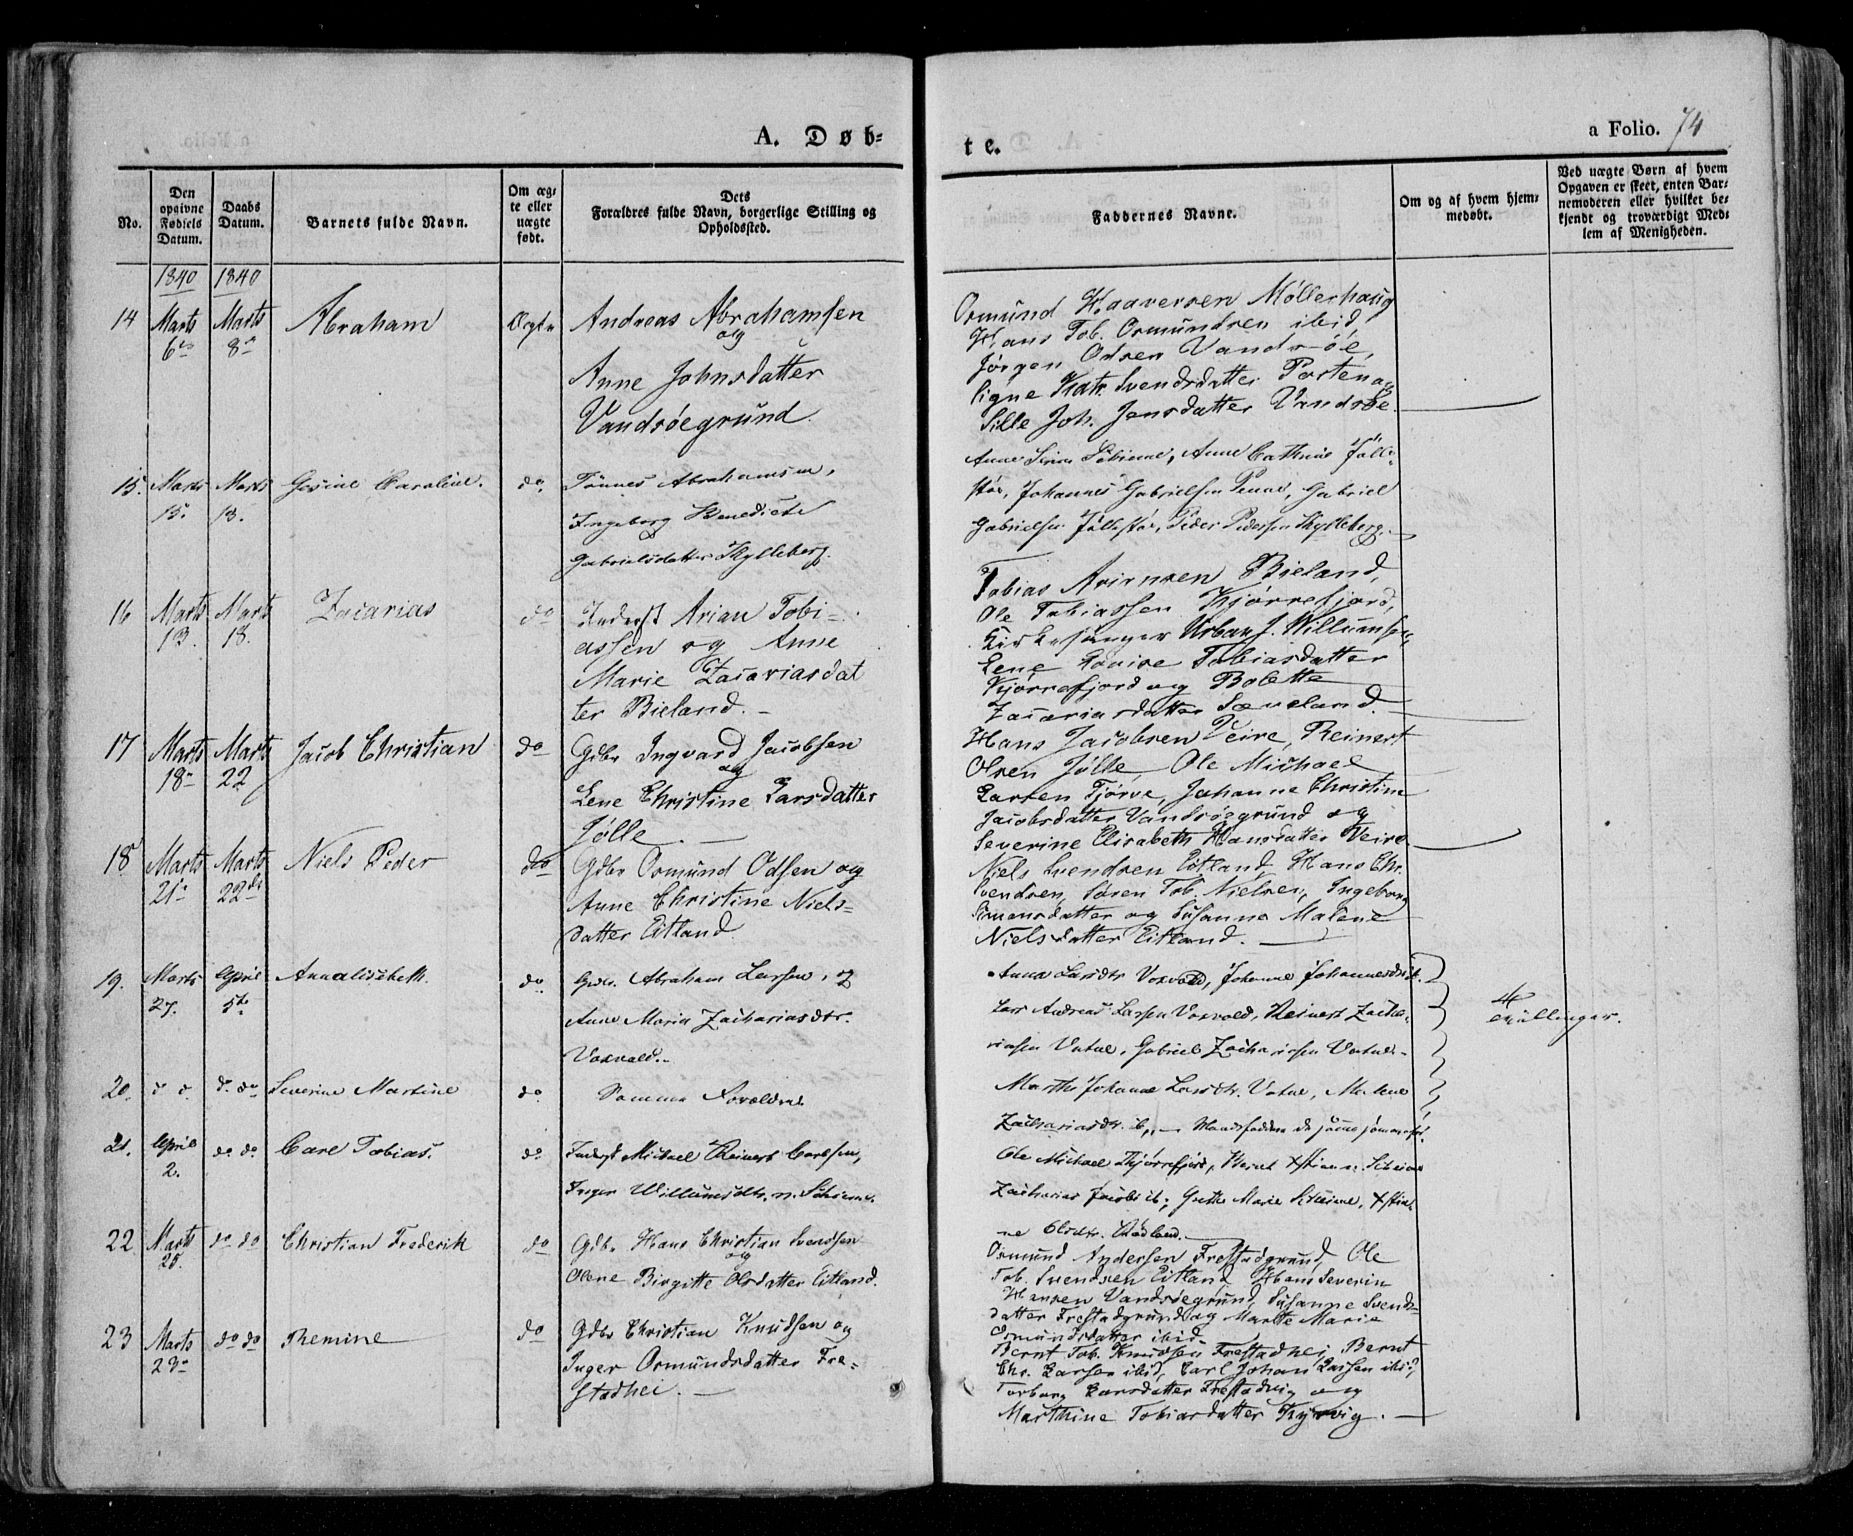 A. Døb-
te.
a Folio. 74
No.
Den opgivne Fødsels Datum.
Daabs Datum.
Barnets fulde Navn.
Om ægte eller uægte født.
Dets Forældres fulde Navn, borgerlige Stilling og Opholdssted.
Faddernes Navne.
Om og af hvem hjemmedøbt.
Ved uægte Børn af hvem Opgaven er skeet, enten Barnemoderen eller hvilket bekjendt og troværdigt Medlem af Menigheden.
1840 1840
14 Marts 6te Marts 8de Abraham Ægte
Andreas Abrahamsen
og
Anne Johnsdatter
Vandsøegrund.
Ormund Haaversen Møllerhaug
Hans Tob. Ormundsen ibid,
Jørgen Odsen Vandsøe,
Signe Kat. Svendsdatter Porsten og
Sille Joh. Jensdatter Vandsøe.
15. Marts 15. Marts 18. Gesine Caroline. do.
Tønnes Abrahamsen,
Ingeborg Benedicte
Gabrielsdatter Kylleberg.
Johannes Gabrielsen Penne, Gabriel
Gabrielsen Jøllestø, Peder Pedersen Kylleberg.
16 Marts 13 Marts 18. Zacarias do
Inderst Arian Tobi-
assen og Anne
Marie Zacariasdat
ter Bieland.
Tobias Arirnsen Bieland,
Ole Tobiassen Kjørrefjord,
Kirkesanger Urban J. Willumsen,
Lene Lovise Tobiasdatter
Kjørrefjord og Bolette
Zacariasdatter Sæveland.
17 Marts 18de Marts 22 Jacob Christian do
Gdbr Ingvard Jacobsen
og
Lene Christine Larsdatter
Jølle
Hans Jacobsen Veire, Reinert
Olsen Jølle, Ole Michael
Larsen Tjørve, Johanne Christine
Jacobsdatter Vandsøegrund og
Severine Elisabeth Hansdatter Veire
18 Marts 21de Marts 22de Niels Peder do
Gdbr Ormund Odsen og
Anne Christine Niels-
datter Eitland
Niels Svendsen Eitland, Hans Chr.
Svendsen, Søren Tob. Nielsen, Ingeborg
Simonsdatter og Susanne Malene
Nielsdatter Eitland.
19. Marts 27. April 5te Annaelisebeth. do.
Gdbr. Abraham Larsen, og
Anne Maria Zachariasdtr.
Voxvald.
Anna Larsdtr Voxvold, Johanne Johannesdtr ib.
Lars Andreas Larsen Voxvold, Reinert Zacha-
riasen Vatne, Gabriel Zachariasen Vatne.
4 Skillinger.
20. d. d. d. do Severine Martine do.
Samme Forældre
Marthe Johanne Larsdtr. Vatne, Malene
Zachariasdtr. ib,
21. April 2. do. do. Carl Tobias. do.
Inderst Michael Reinert Carlsen,
Inger Willumsdtr.
Ole Michael Kjørrefjord, Bernt
Zacharias Jacobs ib, Grethe Marie
ne Olsdtr.
22 Marts 25. do do Christian Frederik do
Gdbr Hans Christian Svendsen
og
Olene Birgitte Olsdatter Eitland.
Ormund Andersen Frestadgrund, Ole
Tob. Svendsen Eitland, Hans Severin
Hansen Vandsøegrund, Susanne Svends-
datter Frestadgrund og Marthe Marie
Ormundsdatter ibid.
23 Marts 23de do do Remine do
Gdbr Christian Knudsen og
Inger Ormundsdatter Fre-
stadhei.
Bernt Tob. Knudsen Frestadhei, Bernt
Chr. Larsen ibid, Carl Johan Larsen ibid,
Torborg Larsdatter Frestadvig og
Marthine Tobiasdatter Kyrvig.